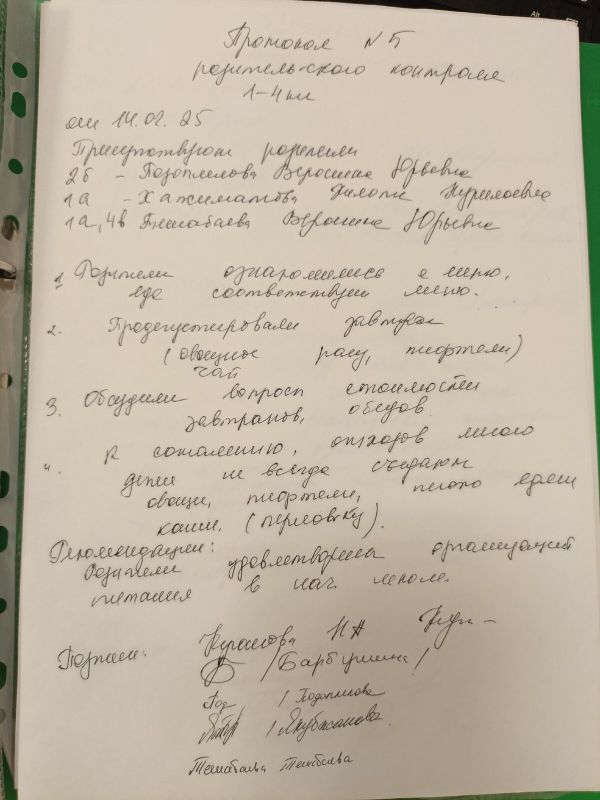 Протокол №5
родительского контроля
1-4 кл
от 14.02.25
Присутствующие родители
2б - Подоплелова Вероника Юрьевна
1а - Хажиматова
1а, 4в Темабаева Вероника Юрьевна
1. Родители ознакомились с меню,
еда соответствует меню.
2. Продегустировали завтрак
(овощное рагу, тефтели)
чай
3. Обсудили вопросы стоимости
завтраков, обедов.
4. К сожалению, отходов много
дети не всегда съедают
овощи, тефтели, плохо едят
каши. (перловку).
Рекомендации:
Родители удовлетворены организацией
питания в нач. школе.
Подписи:
/Барбушина/
Под / Подоплелова
/ Якубжанова
Темабаева